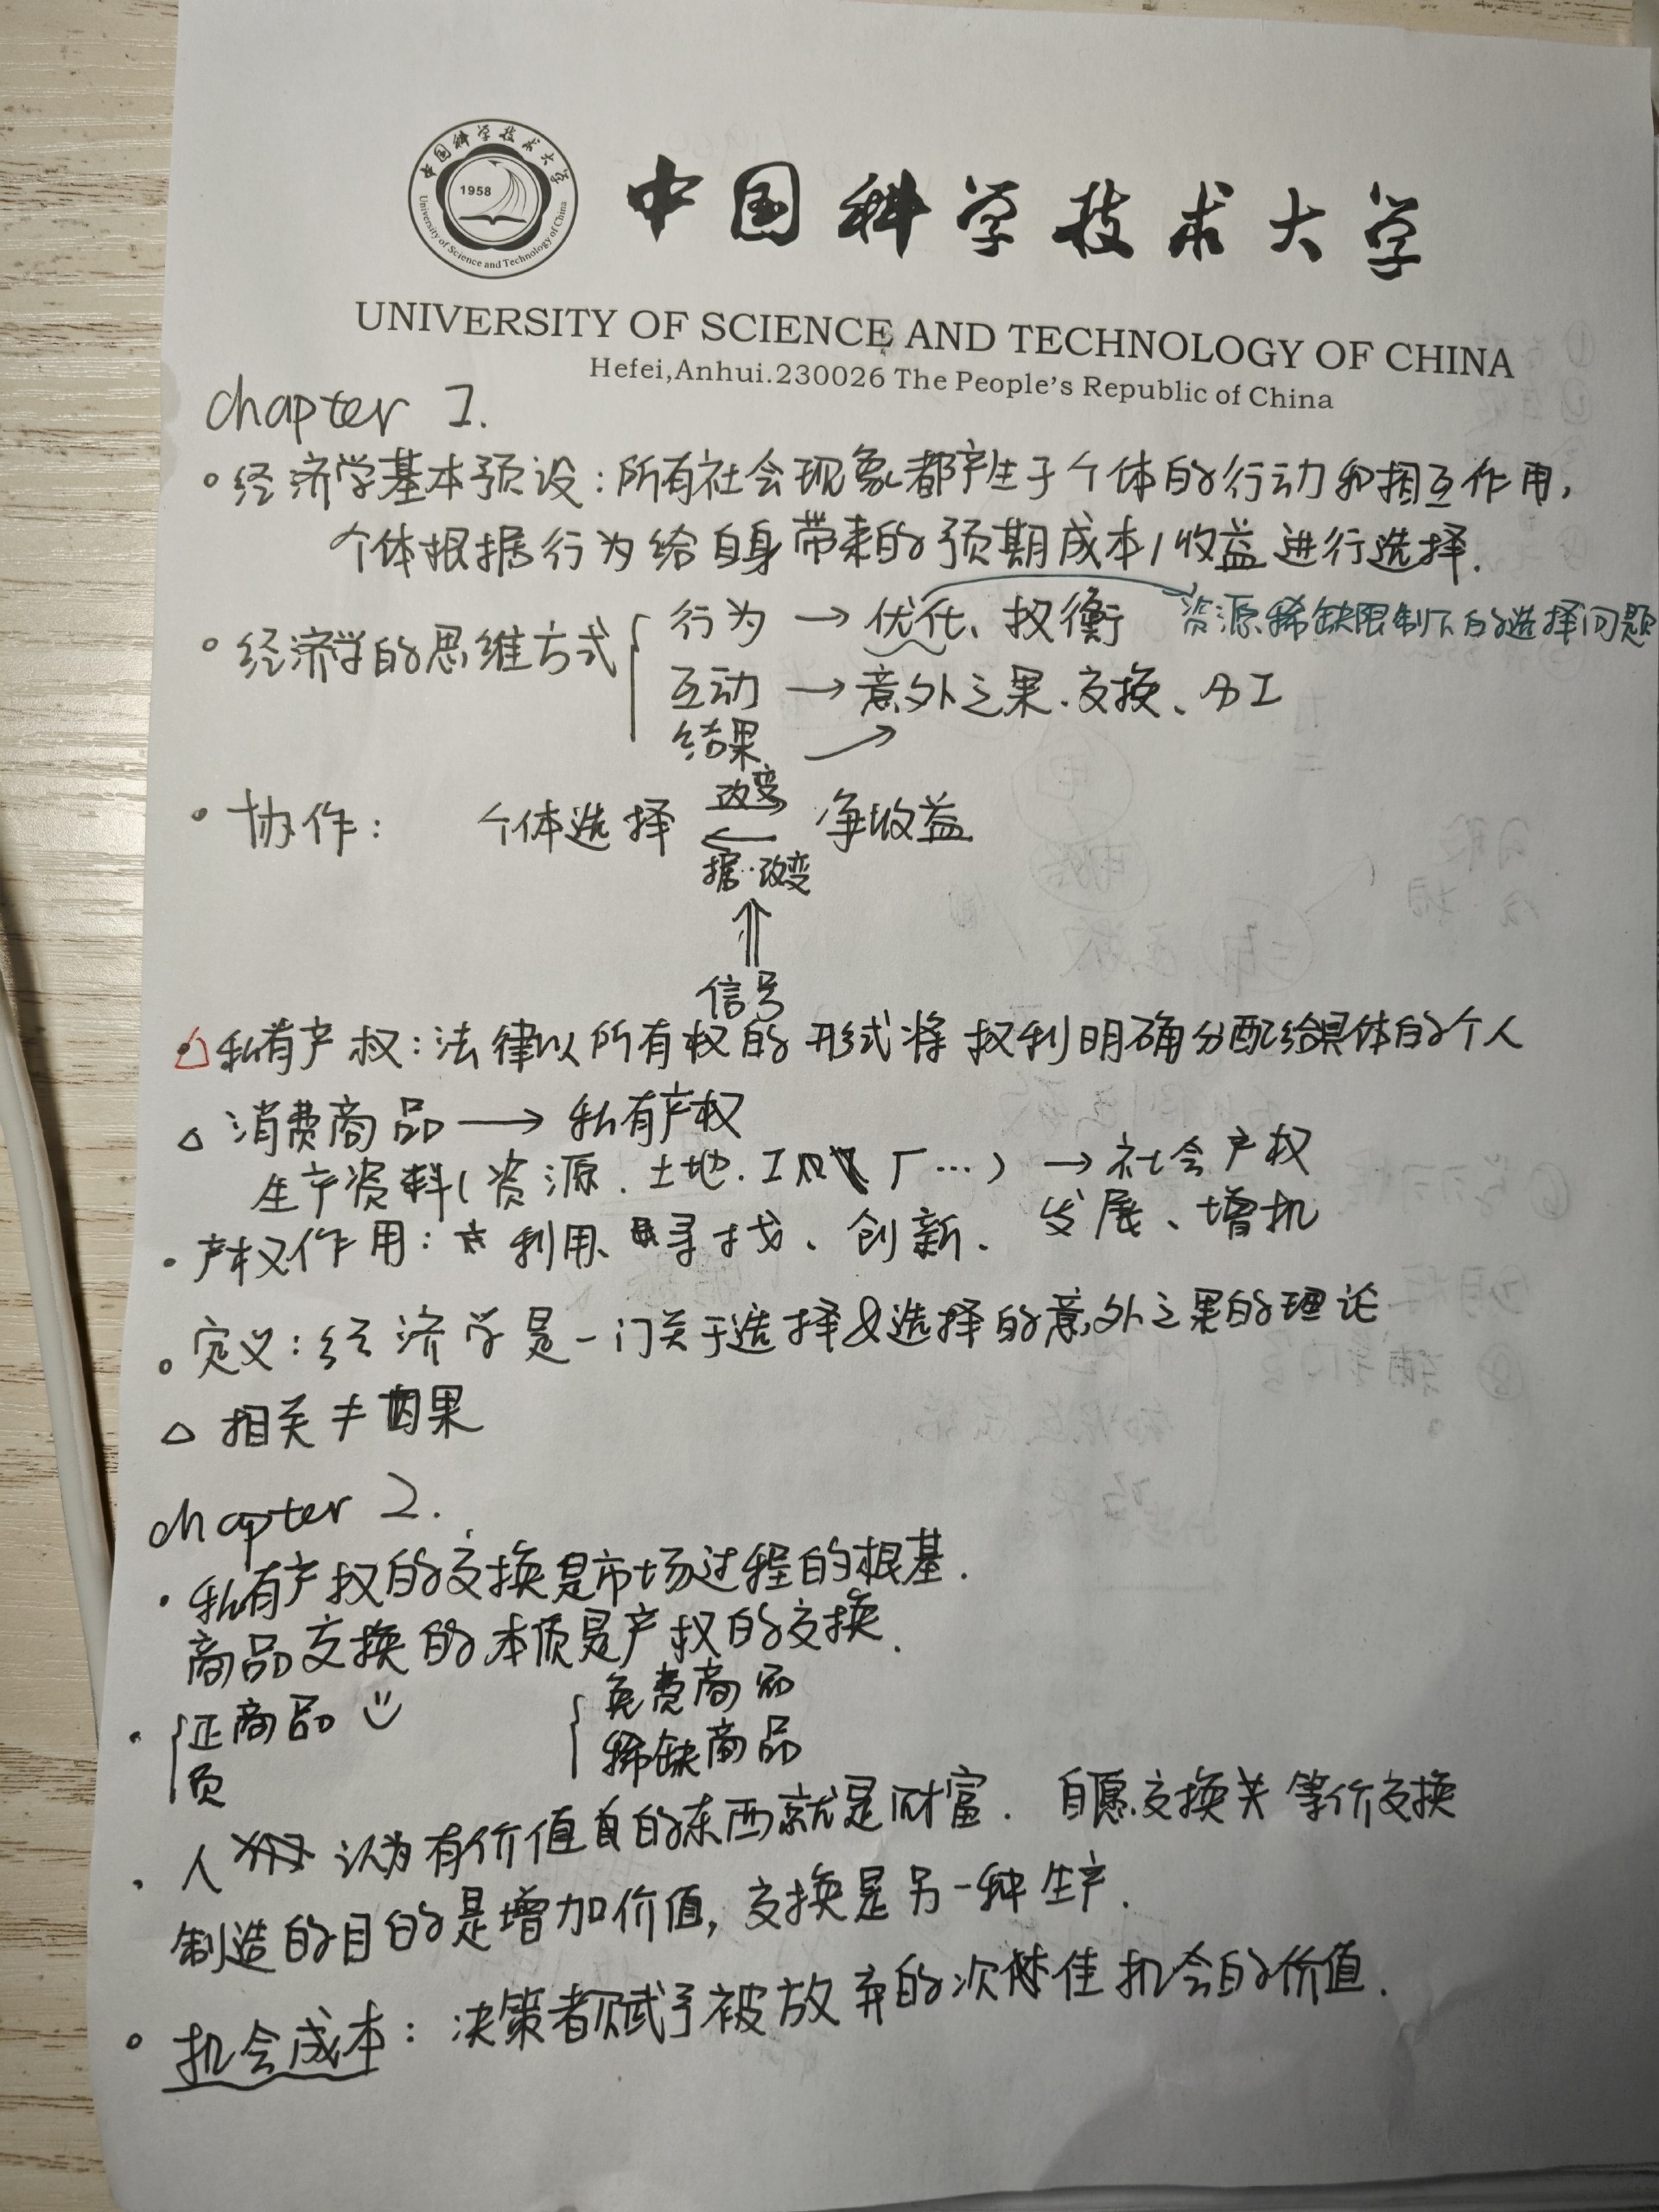 中国科学技术大学
1958
University of Science and Technology of China
中国科学技术大学
UNIVERSITY OF SCIENCE AND TECHNOLOGY OF CHINA
Hefei,Anhui.230026 The People's Republic of China
chapter 1.
。经济学基本预设：所有社会现象都产生于个体的行动和相互作用，
个体根据行为给自身带来的预期成本/收益进行选择.
。经济学的思维方式 { 行为 → 优化、权衡 资源稀缺限制下的选择问题
互动 → 意外之果.交换、分工
结果 ↗
改变
• 协作： 个体选择 ← 净收益
据…改变
⇑
信号
△私有产权：法律以所有权的形式将权利明确分配给具体的个人
△ 消费商品 → 私有产权
生产资料(资源.土地.工厂…) → 社会产权
• 产权作用：利用、寻找、创新.发展、增机
。定义：经济学是一门关于选择&选择的意外之果的理论
△ 相关≠因果
chapter 2.
• 私有产权的交换是市场过程的根基.
商品交换的本质是产权的交换.
• { 正商品 { 免费商品
负 稀缺商品
• 人认为有价值的东西就是财富. 自愿交换≠等价交换
制造的目的是增加价值，交换是另一种生产.
。机会成本：决策者赋予被放弃的次佳机会的价值.